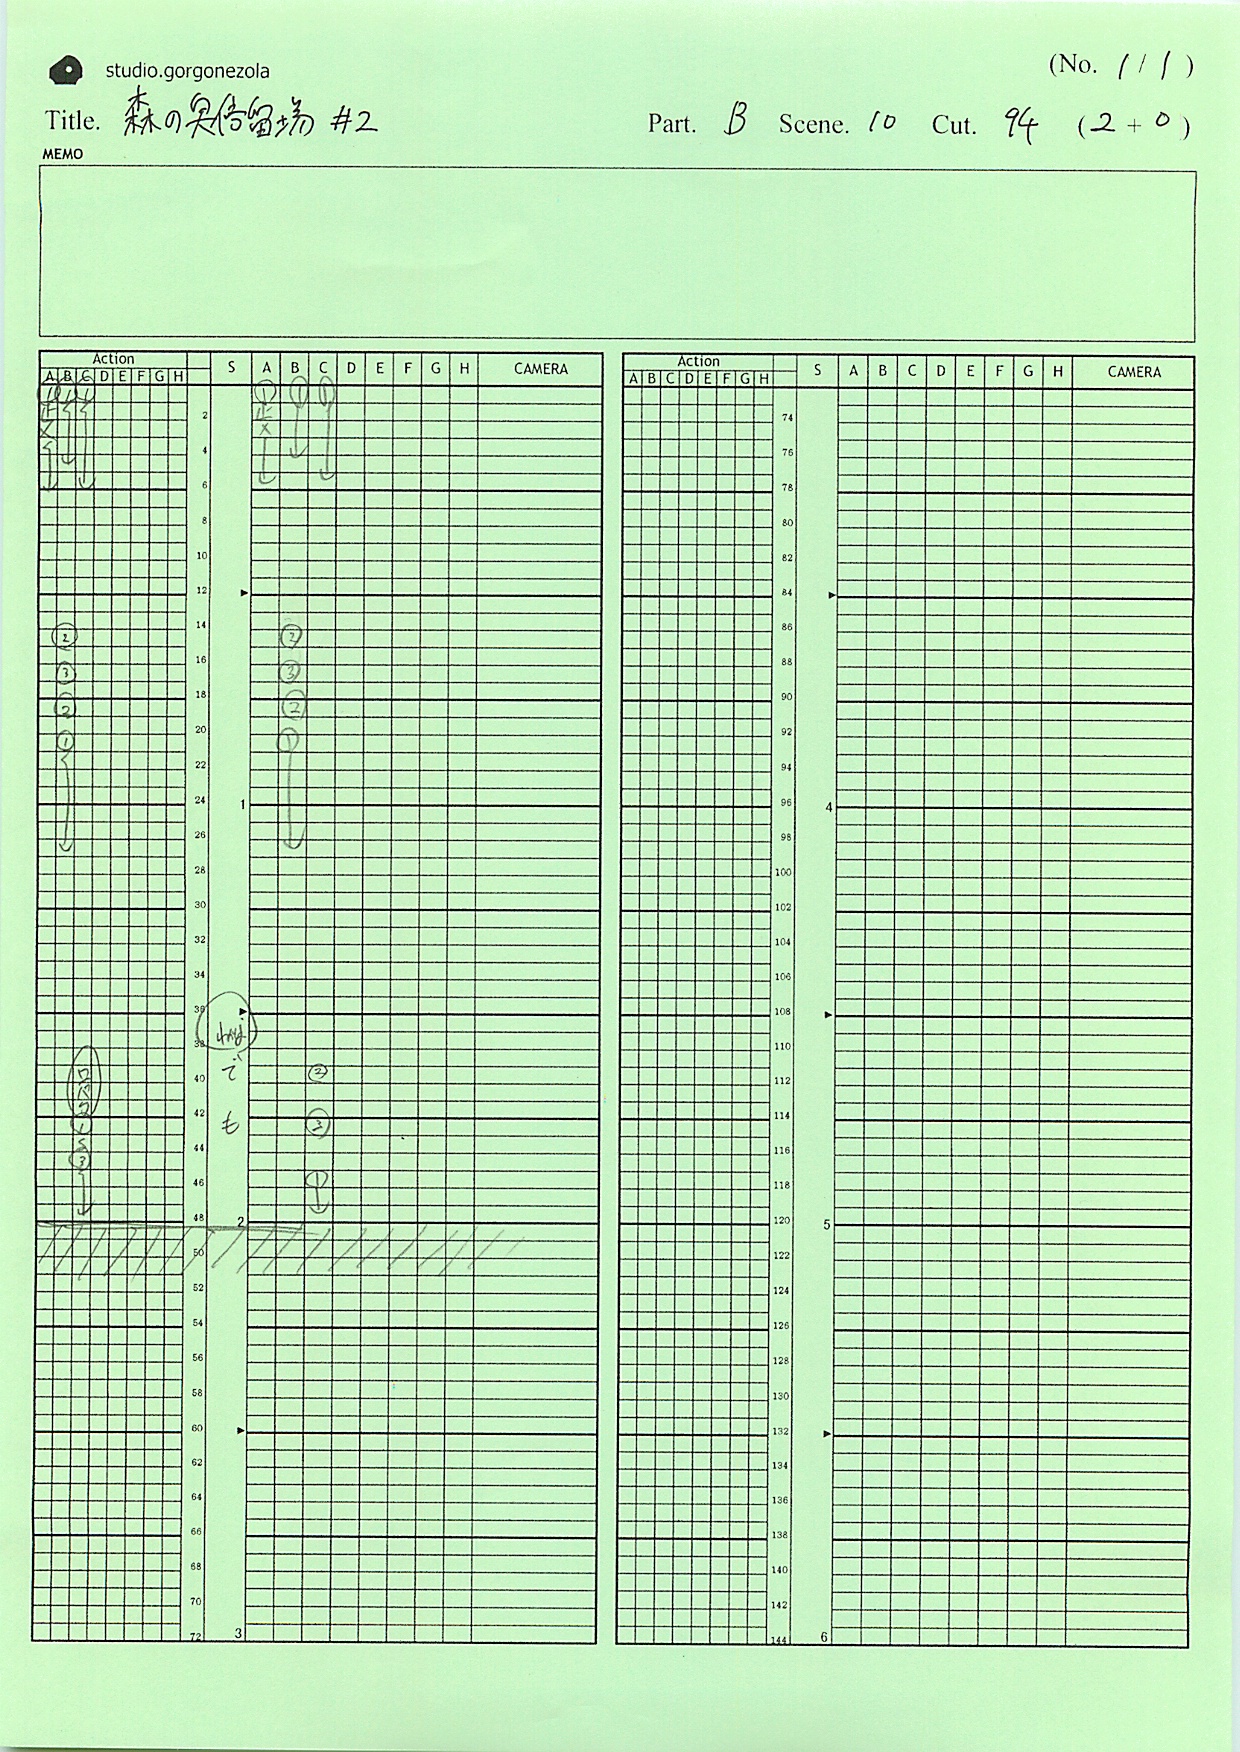 studio.gorgonezola
(No. 1/1)
Title. 森の #2
Part. B Scene. 10 Cut. 94 (2+0)
MEMO
Action S A B C D E F G H CAMERA
A B C D E F G H
1 1 1 1 1 1
止 2 止
× 4 ×
6
8
10
12
14
2 2
16
3 3
18
2 2
20
1 1
22
24 1
26
28
30
32
34
36
38
で
40 2
42
1 も 3
44
3
46 1
48 2
50
52
54
56
58
60
62
64
66
68
70
72 3
Action S A B C D E F G H CAMERA
A B C D E F G H
74
76
78
80
82
84
86
88
90
92
94
96 4
98
100
102
104
106
108
110
112
114
116
118
120 5
122
124
126
128
130
132
134
136
138
140
142
144 6